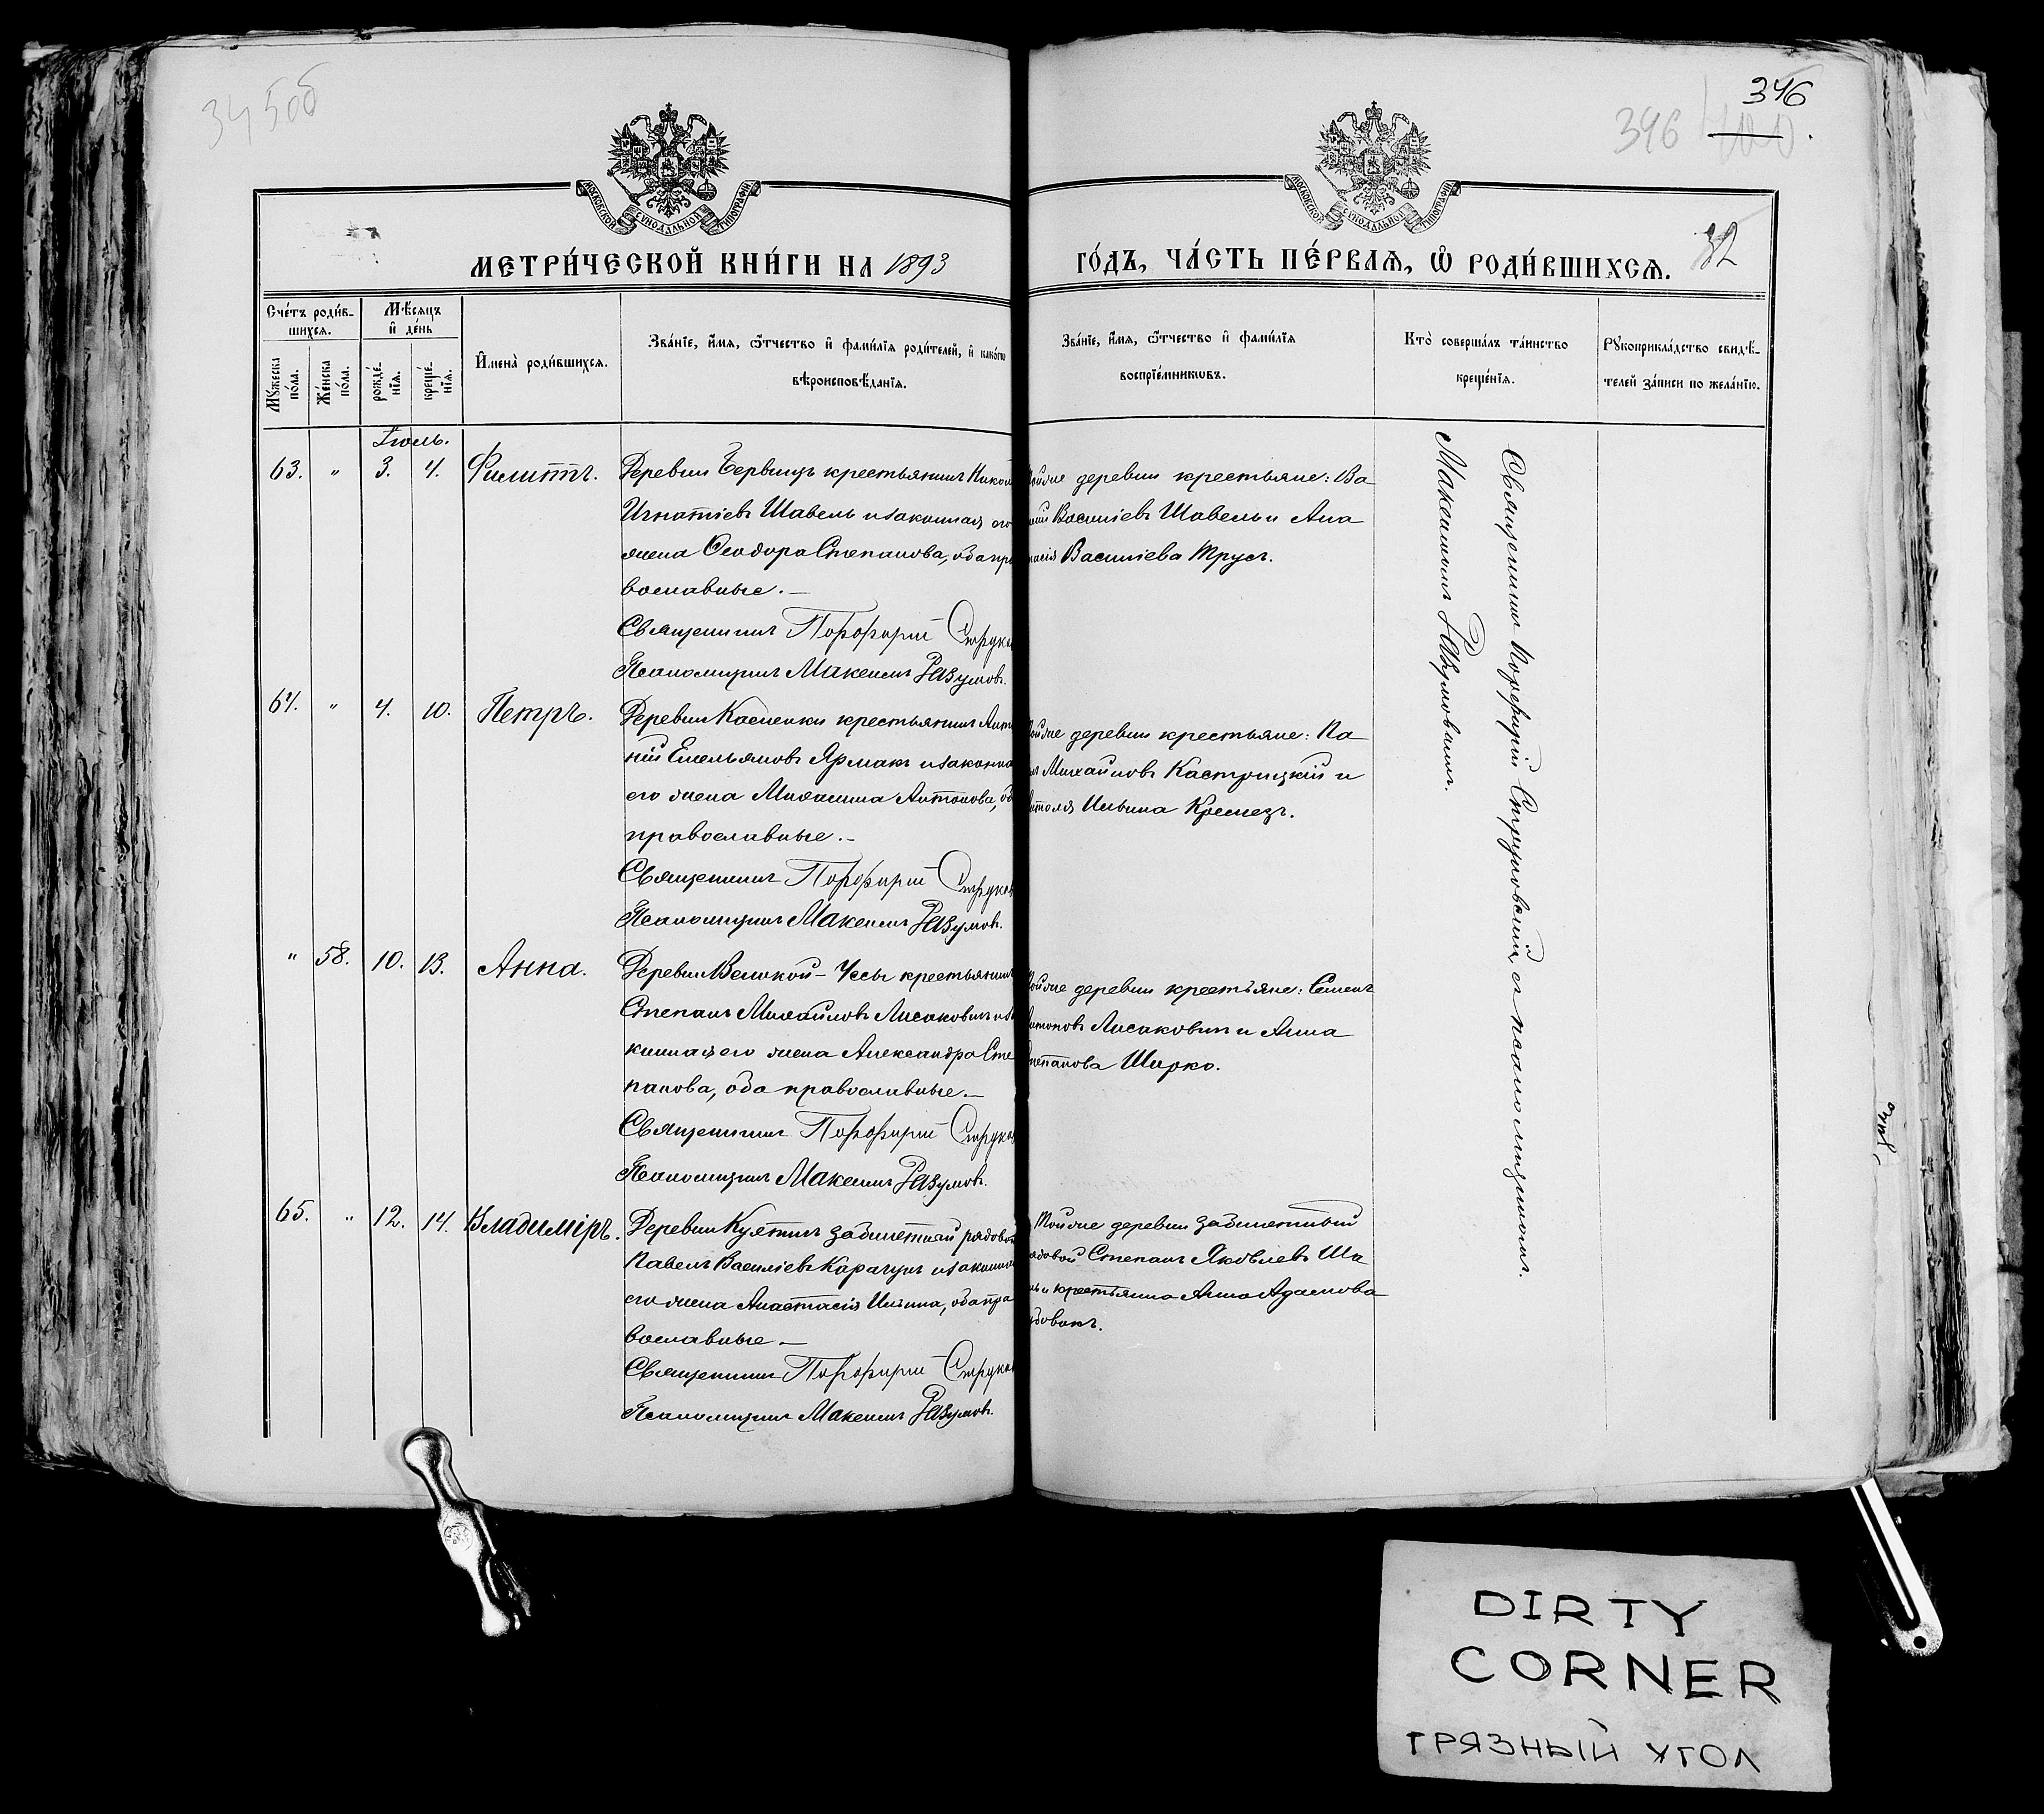 345об
346
346
32
МОСКОВСКОЙ СѴНОДАЛЬНОЙ ТИПОГРАФІИ
МОСКОВСКОЙ СѴНОДАЛЬНОЙ ТИПОГРАФІИ
МЕТРИ́ЧЕСКОЙ КНИ́ГИ НА 1893
ГО́ДЪ, ЧА́СТЬ ПЕ́РВАѦ, Ѡ҆ РОДИ́ВШИХСѦ.
Сче́тъ роди́в-
шихсѧ.
Мѣ́сѧцъ
и҆ де́нь
Мꙋ́жеска по́ла.
Же́нска по́ла.
рожде́-
нїѧ.
креще́-
нїѧ.
И҆мена̀ роди́вшихсѧ.
Зва́нїе, и҆́мѧ, ѻ҆́тчество и҆ фами́лїѧ роди́телей, и҆ како́гѡ
вѣроисповѣ́данїѧ.
Зва́нїе, и҆́мѧ, ѻ҆́тчество и҆ фами́лїѧ
воспрїе́мникѡвъ.
Кто̀ соверша́лъ та́инство
креще́нїѧ.
Рꙋкоприкла́дство свидѣ́-
телей за́писи по жела́нїю.
Іюль.
63. " 3. 4. Филиппъ.
Деревни Червищъ крестьянинъ Никол
Игнатіевъ Шавель и законная его
жена Ѳеодора Степанова, оба пра
вославные. —
Священникъ Порфирій Струков
Псаломщикъ Максимъ Разумовъ.
Той же деревни крестьяне: Ва
Василіевъ Шавель и Ана
Василіева Трусъ.
64. " 4. 10. Петръ.
Деревни Каменки крестьянинъ Анто
ній Емельяновъ Ярмакъ и законна
его жена Михалина Антонова, об
православные. —
Священникъ Порфирій Струков
Псаломщикъ Максимъ Разумовъ.
Той же деревни крестьяне: Па
Михайловъ Кастрицкій и
Ильина Кремезъ.
" 58. 10. 13. Анна.
Деревни Великой-Чессы крестьянинъ
Степанъ Михайловъ Лисаковичъ и за
конная его жена Александра Сте
панова, оба православные. —
Священникъ Порфирій Струков
Псаломщикъ Максимъ Разумовъ.
Той же деревни крестьяне: Семенъ
Антоновъ Лисаковичъ и Анна
Степанова Ширко.
65. " 12. 14. Владиміръ.
Деревни забилетный рядовой
Павелъ Василіевъ Карачунъ и законная
его жена Анастасія Ильина, оба пра
вославные —
Священникъ Порфирій Струков
Псаломщикъ Максимъ Разумовъ.
Той же деревни забилетный
рядовой Степанъ Яковлевъ Ша
и крестьянка Анна Адамова
Священникъ Порфирій Струковскій съ псаломщикомъ
Максимомъ Разумовымъ.
DIRTY
CORNER
ГРЯЗНЫЙ УГОЛ